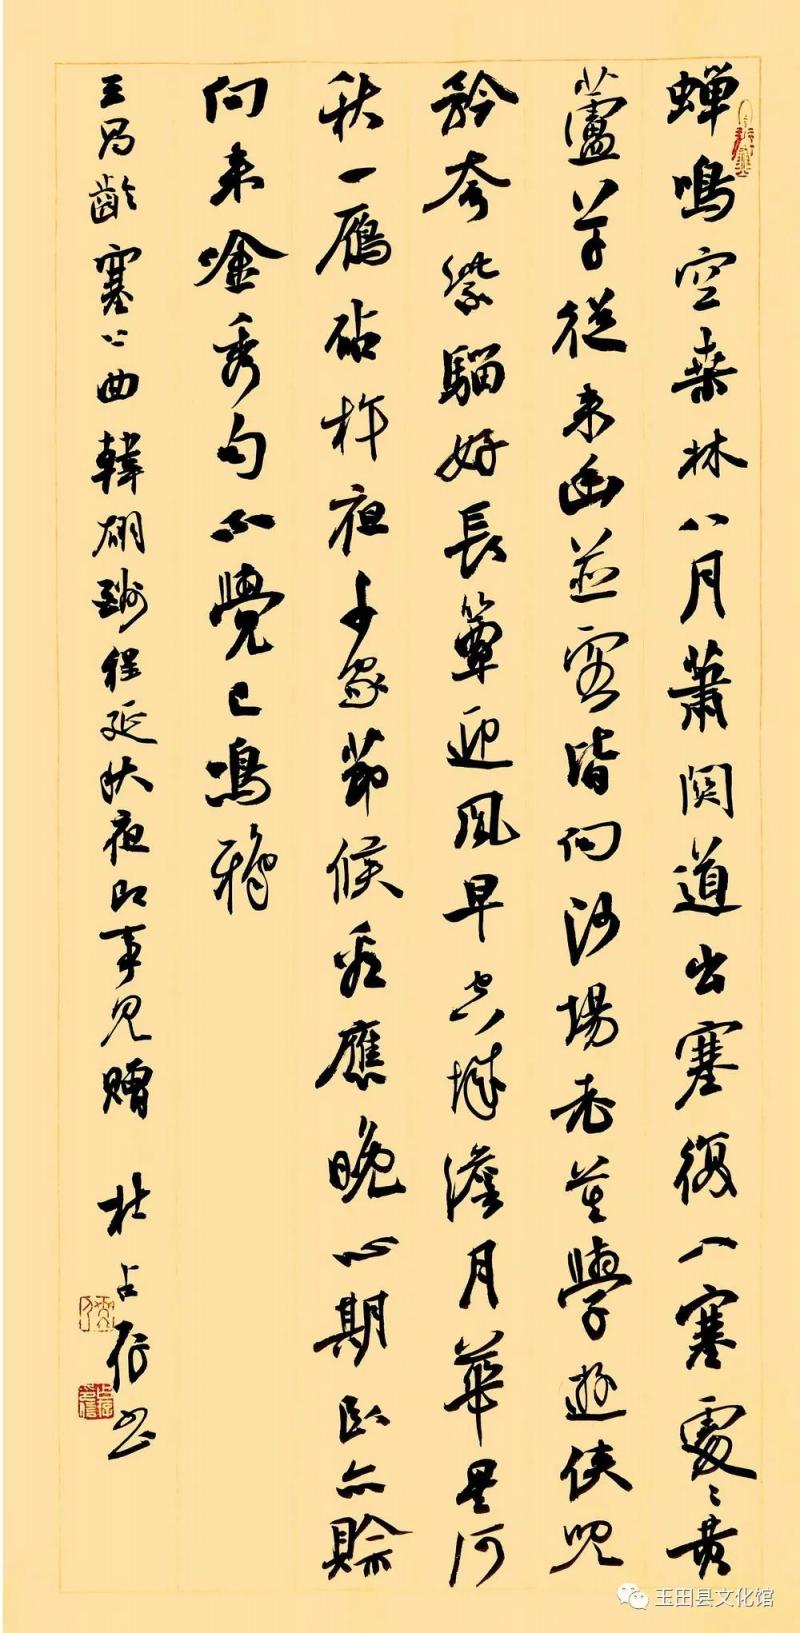 蝉鳴空桑林八月蕭関道出塞復入塞處〻黄
蘆草從来幽並客皆向沙場老莫學遊侠児
矜夸紫騮好長簟迎風早空城澹月華星河
秋一雁砧杵夜千家節候看應晚心期卧亦賒
向来吟秀句不覺已鳴鴉
王昌齡塞上曲韓翃酬程延秋夜即事見贈 杜占書
玉田县文化馆